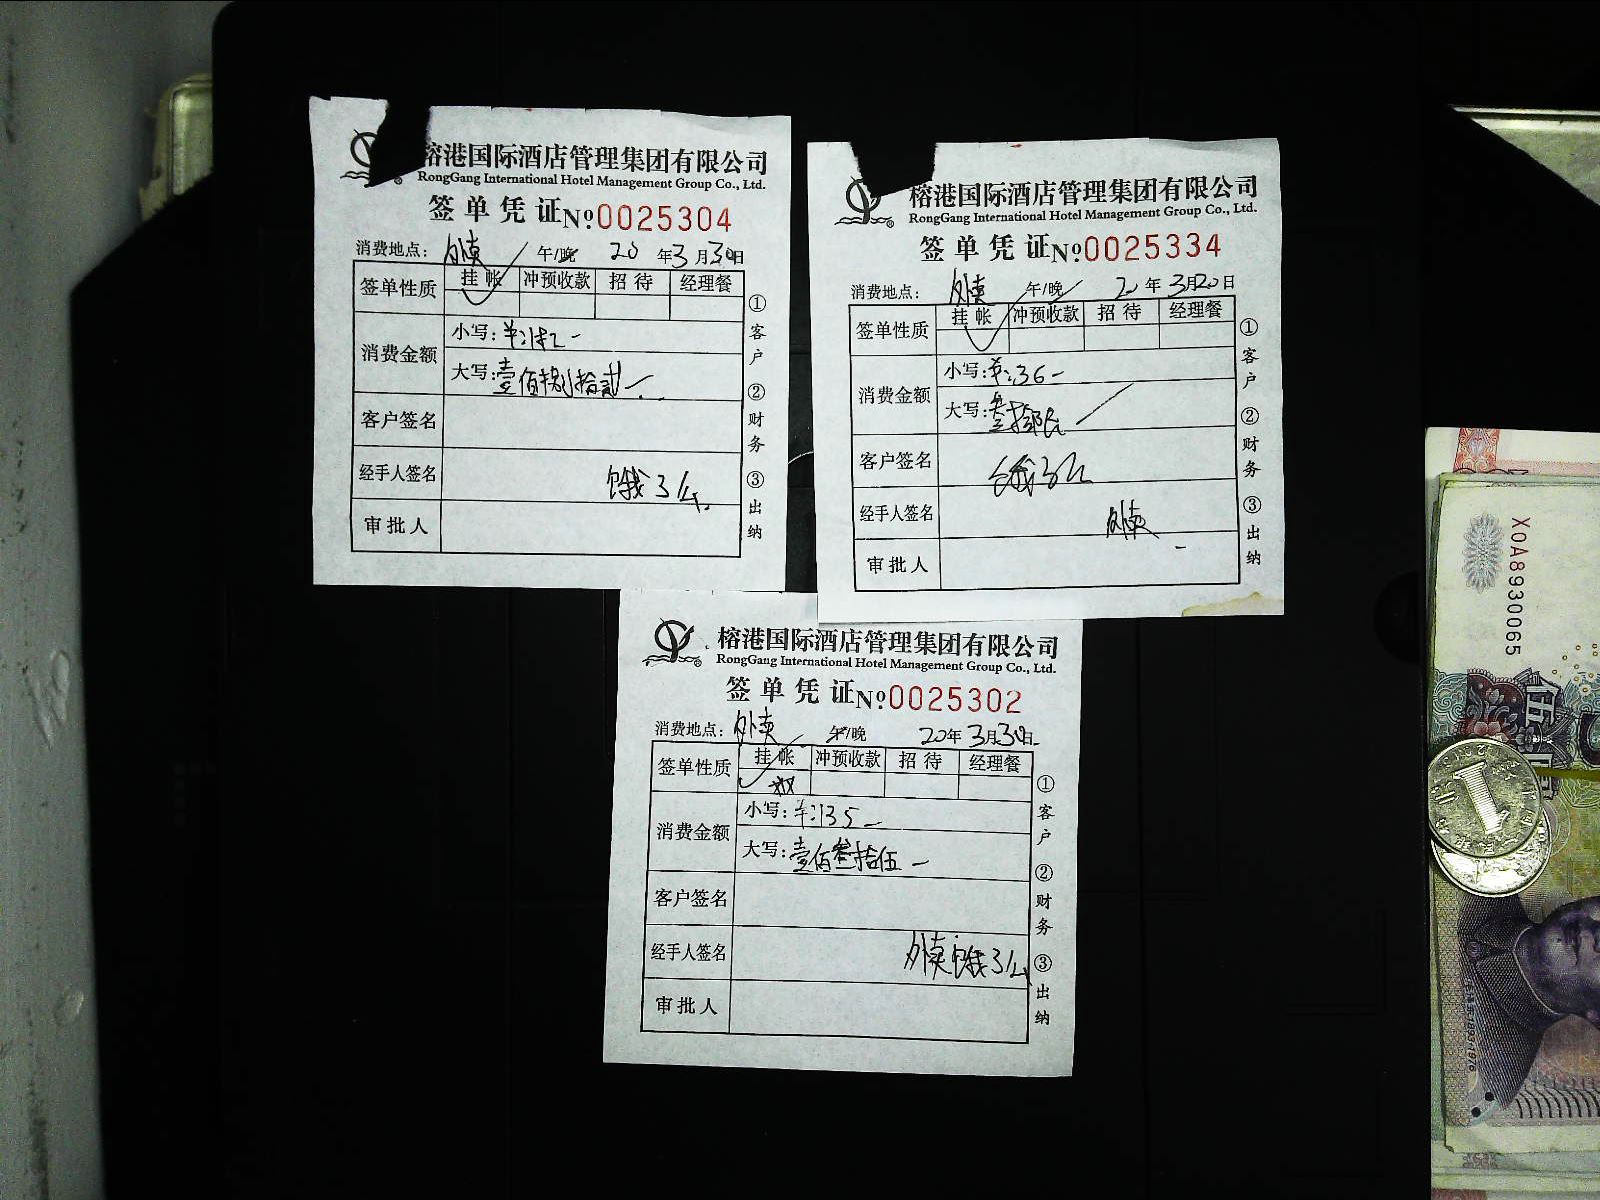 榕港国际酒店管理集团有限公司
RongGang International Hotel Management Group Co., Ltd.
签单凭证 №0025304
消费地点: 外卖 午/晚 20年3月30日
签单性质 挂帐 冲预收款 招待 经理餐
消费金额 小写:
大写: 壹佰捌拾贰
客户签名
经手人签名 饿了么
审批人
①客户 ②财务 ③出纳
榕港国际酒店管理集团有限公司
RongGang International Hotel Management Group Co., Ltd.
签单凭证 №0025334
消费地点: 外卖 午/晚 20年3月20日
签单性质 挂帐 冲预收款 招待 经理餐
消费金额 小写: ¥:36
大写:
客户签名 饿了么
经手人签名 外卖
审批人
①客户 ②财务 ③出纳
榕港国际酒店管理集团有限公司
RongGang International Hotel Management Group Co., Ltd.
签单凭证 №0025302
消费地点: 外卖 午/晚 20年3月30日
签单性质 挂帐 冲预收款 招待 经理餐
消费金额 小写: ¥:135
大写: 壹佰叁拾伍
客户签名
经手人签名 外卖 饿了么
审批人
①客户 ②财务 ③出纳
X0A8930065
伍
1
1893-1976